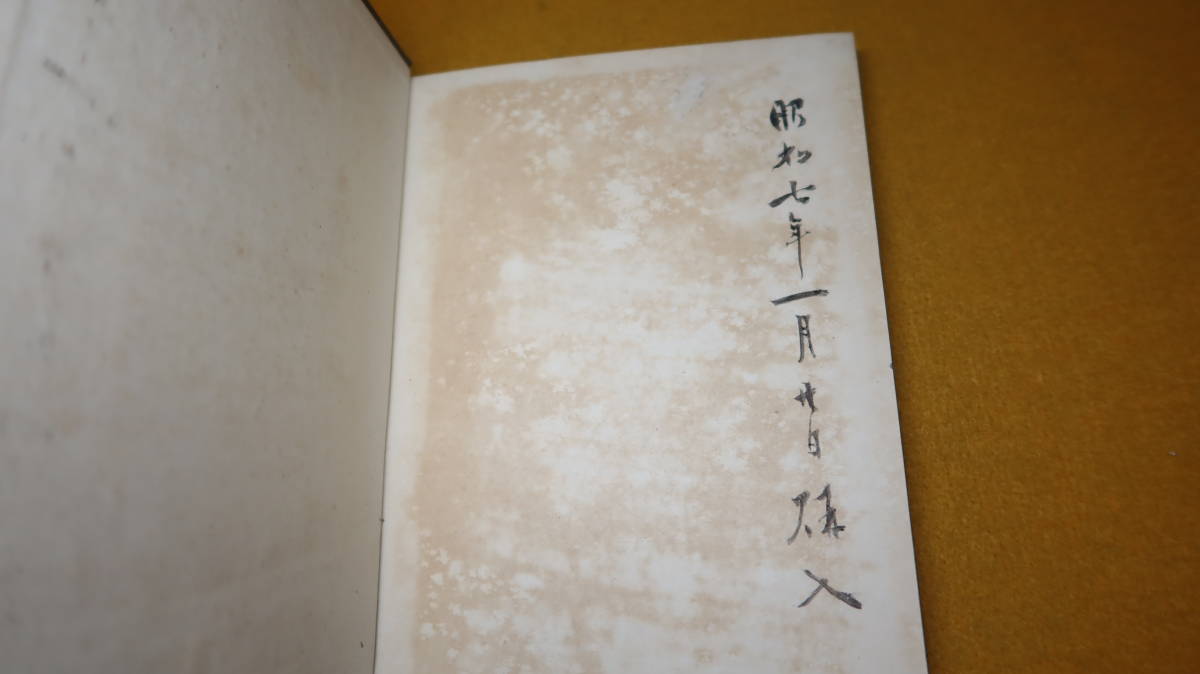 昭和七年一月廿日購入